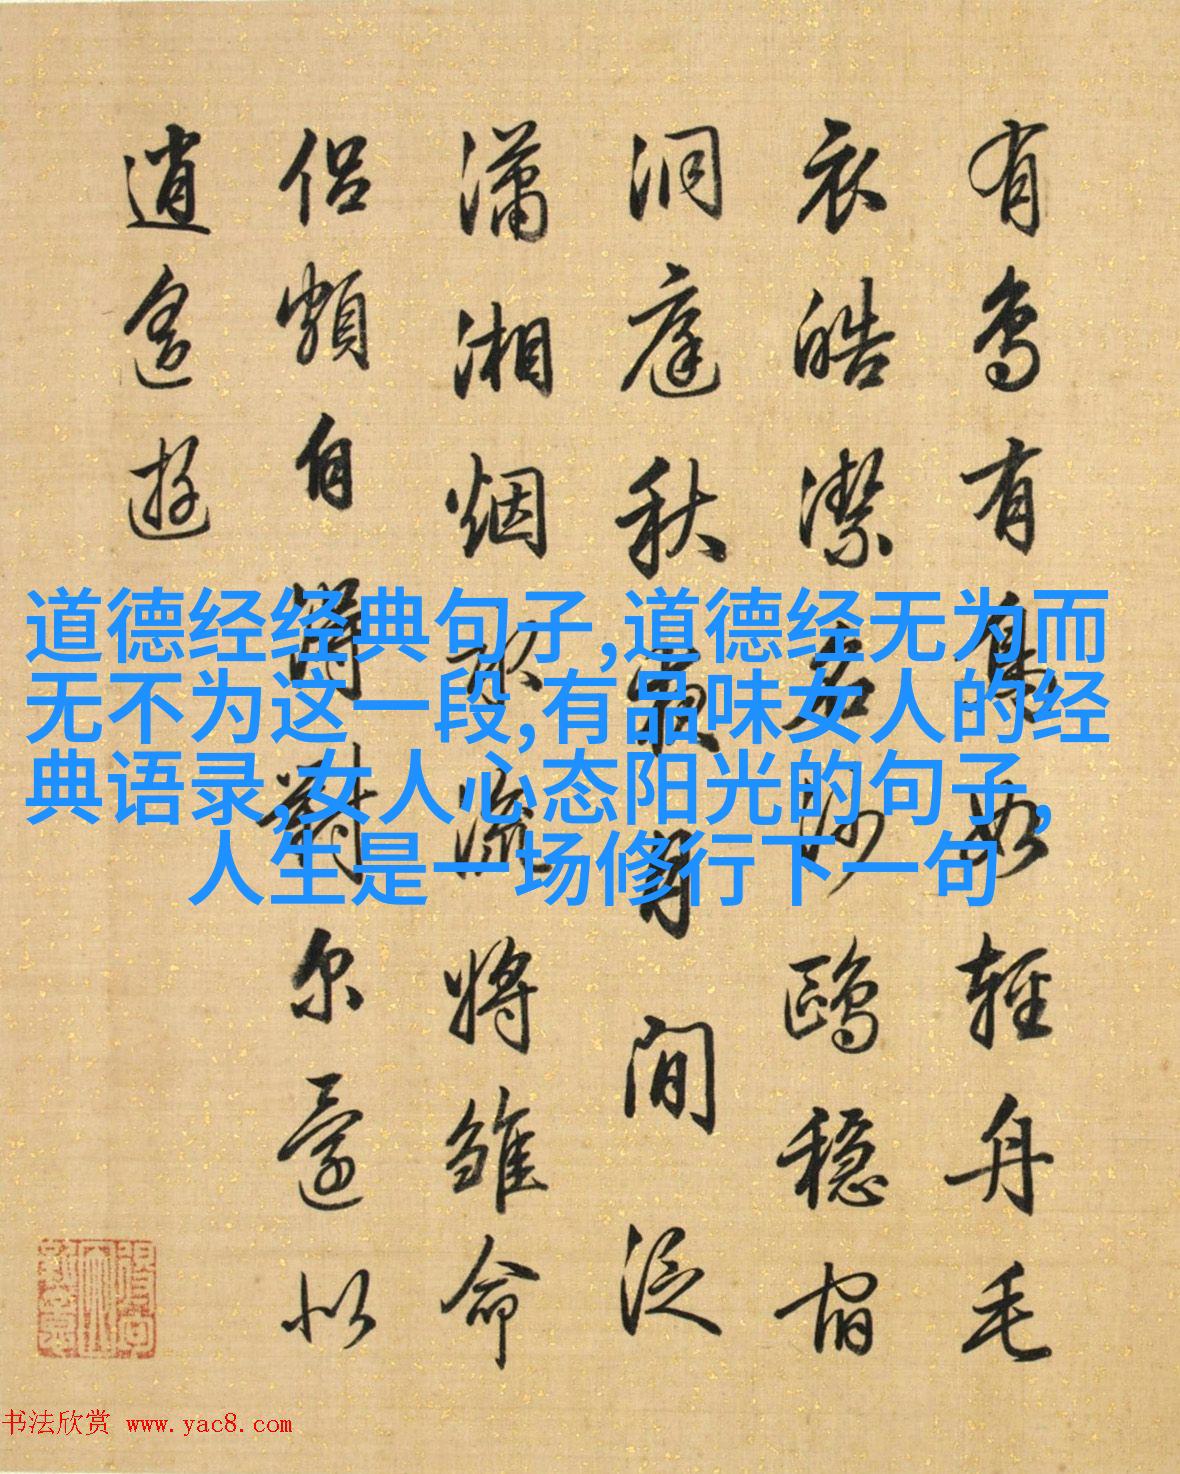 有鳥有如輕舟毛
衣皓潔若沙鷗穩宿
洞庭秋間泛
瀟湘烟流將雛命
侶頗自對尔還以
逍遙遊
道德经经典句子,道德经无为而
无不为这一段,有品味女人的经
典语录,女人心态阳光的句子,
人生是一场修行下一句
书法欣赏 www.yac8.com